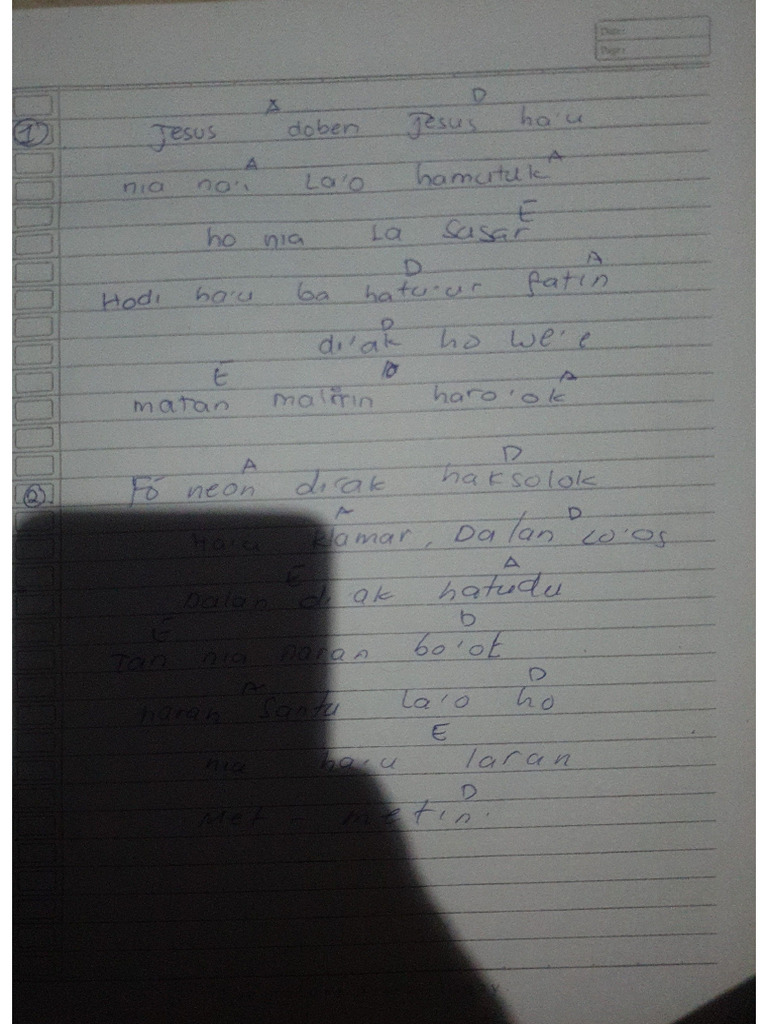 Date:
Page:
A D
1 Jesus doben Jesus ha'u
A A
nia na'i La'o hamutuk
E
ho nia La sasar
D A
Hodi ha'u ba hatu'ur fatin
D
di'ak ho we'e
E D A
matan malirin haro'ok
A D
2 Fó neon di'ak haksolok
A D
Ha'u klamar, Dalan lo'os
E A
Dalan di'ak hatudu
E D
Tan nia naran bo'ot
A D
naran Santu la'o ho
E
nia ha'u laran
D
Met - metin.